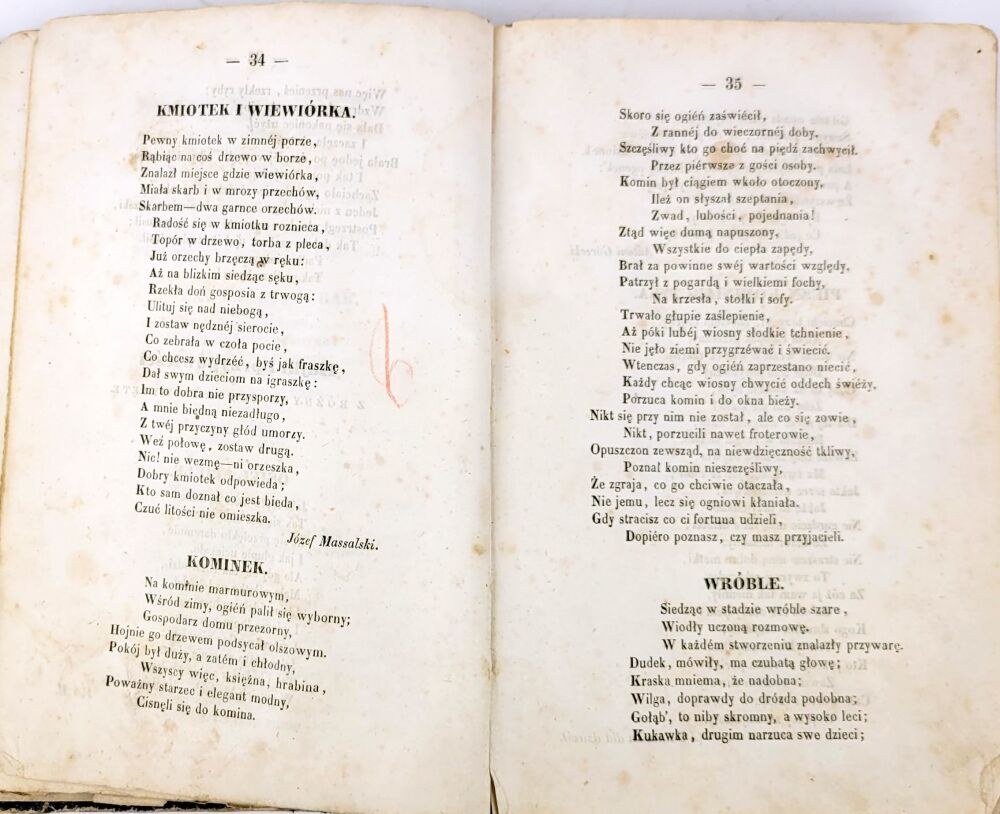 — 34 —
KMIOTEK I WIEWIÓRKA.
Pewny kmiotek w zimnéj porze,
Rąbiąc na coś drzewo w borze,
Znalazł miejsce gdzie wiewiórka,
Miała skarb i w mrozy przechów,
Skarbem—dwa garnce orzechów.
Radość się w kmiotku roznieca,
Topór w drzewo, torba z pleca,
Już orzechy brzęczą w ręku:
Aż na blizkim siedząc sęku,
Rzekła doń gosposia z trwogą:
Ulituj się nad niebogą,
I zostaw nędznéj sierocie,
Co zebrała w czoła pocie,
Co chcesz wydrzéć, byś jak fraszkę,
Dał swym dzieciom na igraszkę:
Im to dobra nie przysporzy,
A mnie biędną niezadługo,
Z twéj przyczyny głód umorzy.
Weź połowę, zostaw drugą.
Nic! nie wezmę—ni orzeszka,
Dobry kmiotek odpowieda;
Kto sam doznał co jest bieda,
Czuć litości nie omieszka.
Józef Massalski.
KOMINEK.
Na kominie marmurowym,
Wśród zimy, ogiéń palił się wyborny;
Gospodarz domu przezorny,
Hojnie go drzewem podsycał olszowym.
Pokój był duży, a zatém i chłodny,
Wszyscy więc, księżna, hrabina,
Poważny starzec i elegant modny,
Cisnęli się do komina.
— 35 —
Skoro się ogiéń zaświécił,
Z rannéj do wieczornéj doby.
Szczęśliwy kto go choć na piędź zachwycił.
Przez piérwsze z gości osoby.
Komin był ciągiem wkoło otoczony,
Ileż on słyszał szeptania,
Zwad, lubości, pojednania!
Ztąd więc dumą napuszony,
Wszystkie do ciepła zapędy,
Brał za powinne swéj wartości względy,
Patrzył z pogardą i wielkiemi fochy,
Na krzesła, stołki i sofy.
Trwało głupie zaślepienie,
Aż póki lubéj wiosny słodkie tchnienie,
Nie jęło ziemi przygrzéwać i świecić.
Wtenczas, gdy ogiéń zaprzestano niecić,
Każdy chcąc wiosny chwycić oddech świéży,
Porzuca komin i do okna bieży.
Nikt się przy nim nie został, ale co się zowie,
Nikt, porzucili nawet froterowie,
Opuszczon zewsząd, na niewdzięczność tkliwy,
Poznał komin nieszczęśliwy,
Że zgraja, co go chciwie otaczała,
Nie jemu, lecz się ogniowi kłaniała.
Gdy stracisz co ci fortuna udzieli,
Dopiéro poznasz, czy masz przyjacieli.
WRÓBLE.
Siedząc w stadzie wróble szare,
Wiodły uczoną rozmowę.
W każdém stworzeniu znalazły przywarę.
Dudek, mówiły, ma czubatą głowę;
Kraska mniema, że nadobna;
Wilga, doprawdy do drózda podobna;
Gołąb', to niby skromny, a wysoko leci;
Kukawka, drugim narzuca swe dzieci;